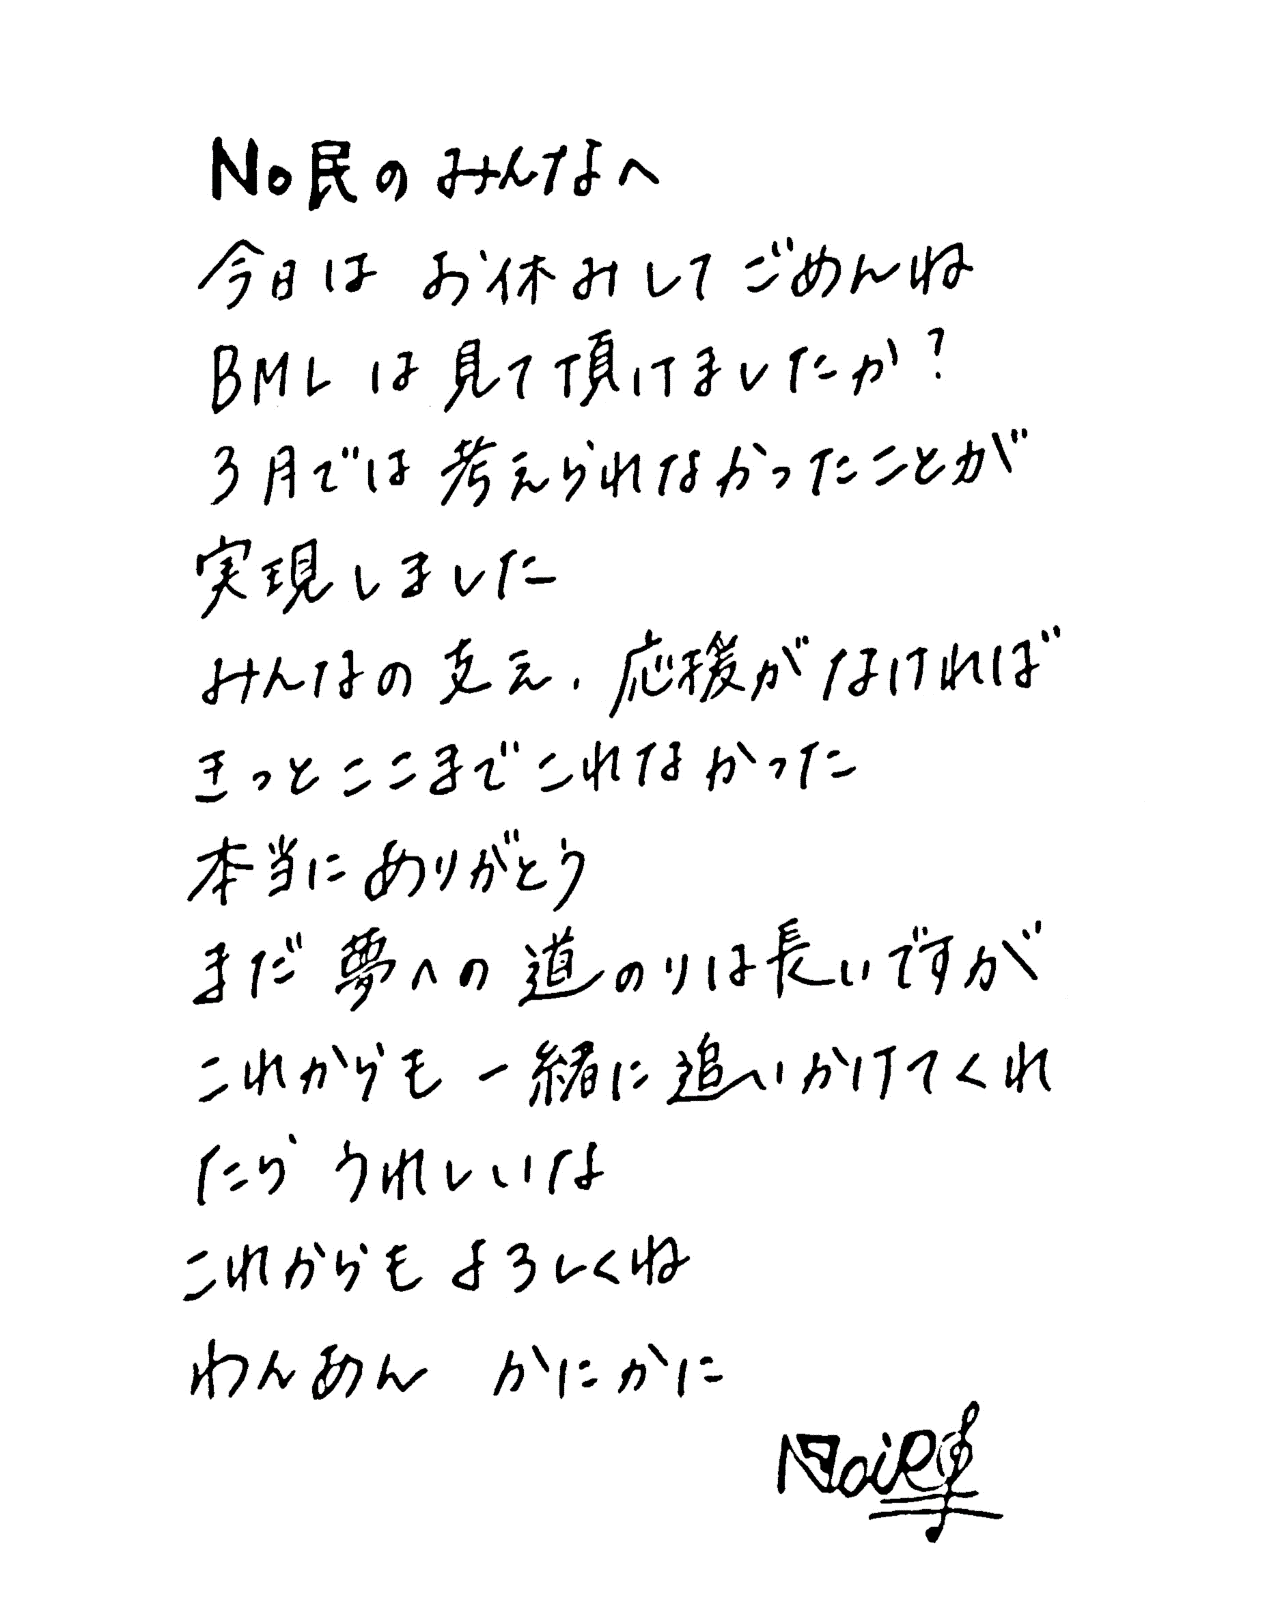 No民のみんなへ
今日は お休みして ごめんね
BMLは見て頂けましたか?
3月では考えられなかったことが
実現しました
みんなの支え、応援がなければ
きっとここまでこれなかった
本当にありがとう
まだ夢への道のりは長いですが
これからも一緒に追いかけてくれ
たら うれしいな
これからもよろしくね
わんあん かにかに